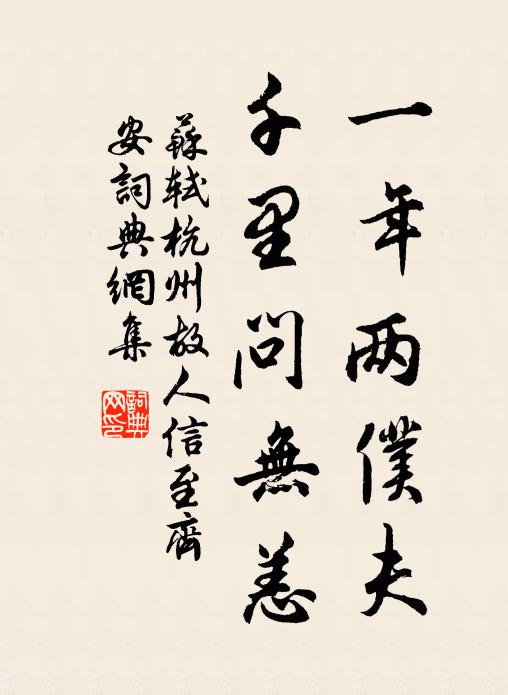 一年两僕夫
千里問無恙
蘇軾杭州故人信至齊
安詞典網集
詞典网印